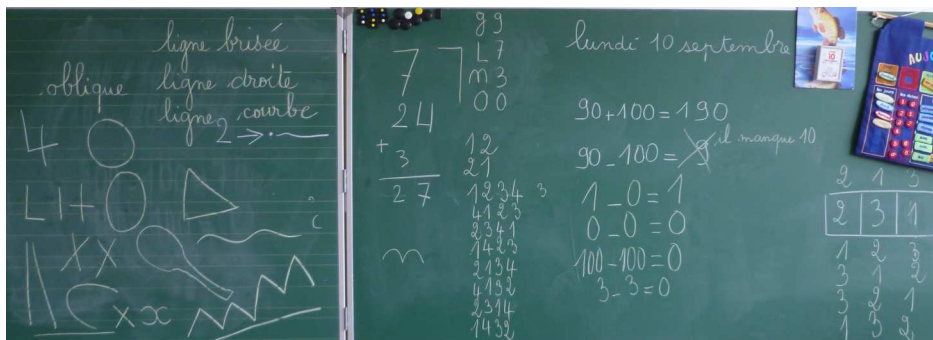 ligne brisée
oblique ligne droite
ligne courbe
2 →
4
L1+
x x
x x
7 7
24
+
3
27
g g
L 7
m 3
0 0
12
21
1234 3
4123
2341
1423
2134
4132
2314
1432
lundi 10 septembre
90+100=190
90-100= il manque 10
1-0=1
0-0=0
100-100=0
3-3=0
AUJO
10
2 1 3
2 3 1
1 2 3
3 1 2
3 2 1
1 3 2